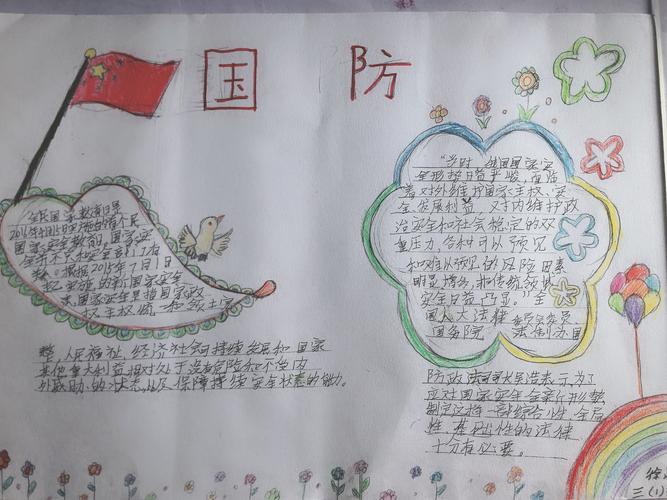 国 防
全民国家安全教育日是
2016年4月15日
国家安全教育
根据2015年7月1日
实施的新国家安全
国家安全是指国家政
权、主权、统一和领土完
整,人民福祉、经济社会可持续发展和国家
其他重大利益相对处于没有危险和不受内
外威胁的状态,以及保障持续安全状态的能力。
"当时,我国国家安
全形势日益严峻,面临
着对外维护国家主权、安
全、发展利益,对内维护政
治安全和社会稳定的双
重压力,各种可以预见
和难以预见的风险因素
明显增多,非传统领域
安全日益凸显。"全
国人大法律委员会委员
国务院 法制办国
防政法司司长吴浩表示,为了
应对国家安全全新的形势
制定这样一部综合性、全局
性、基础性的法律
十分有必要。
徐
三